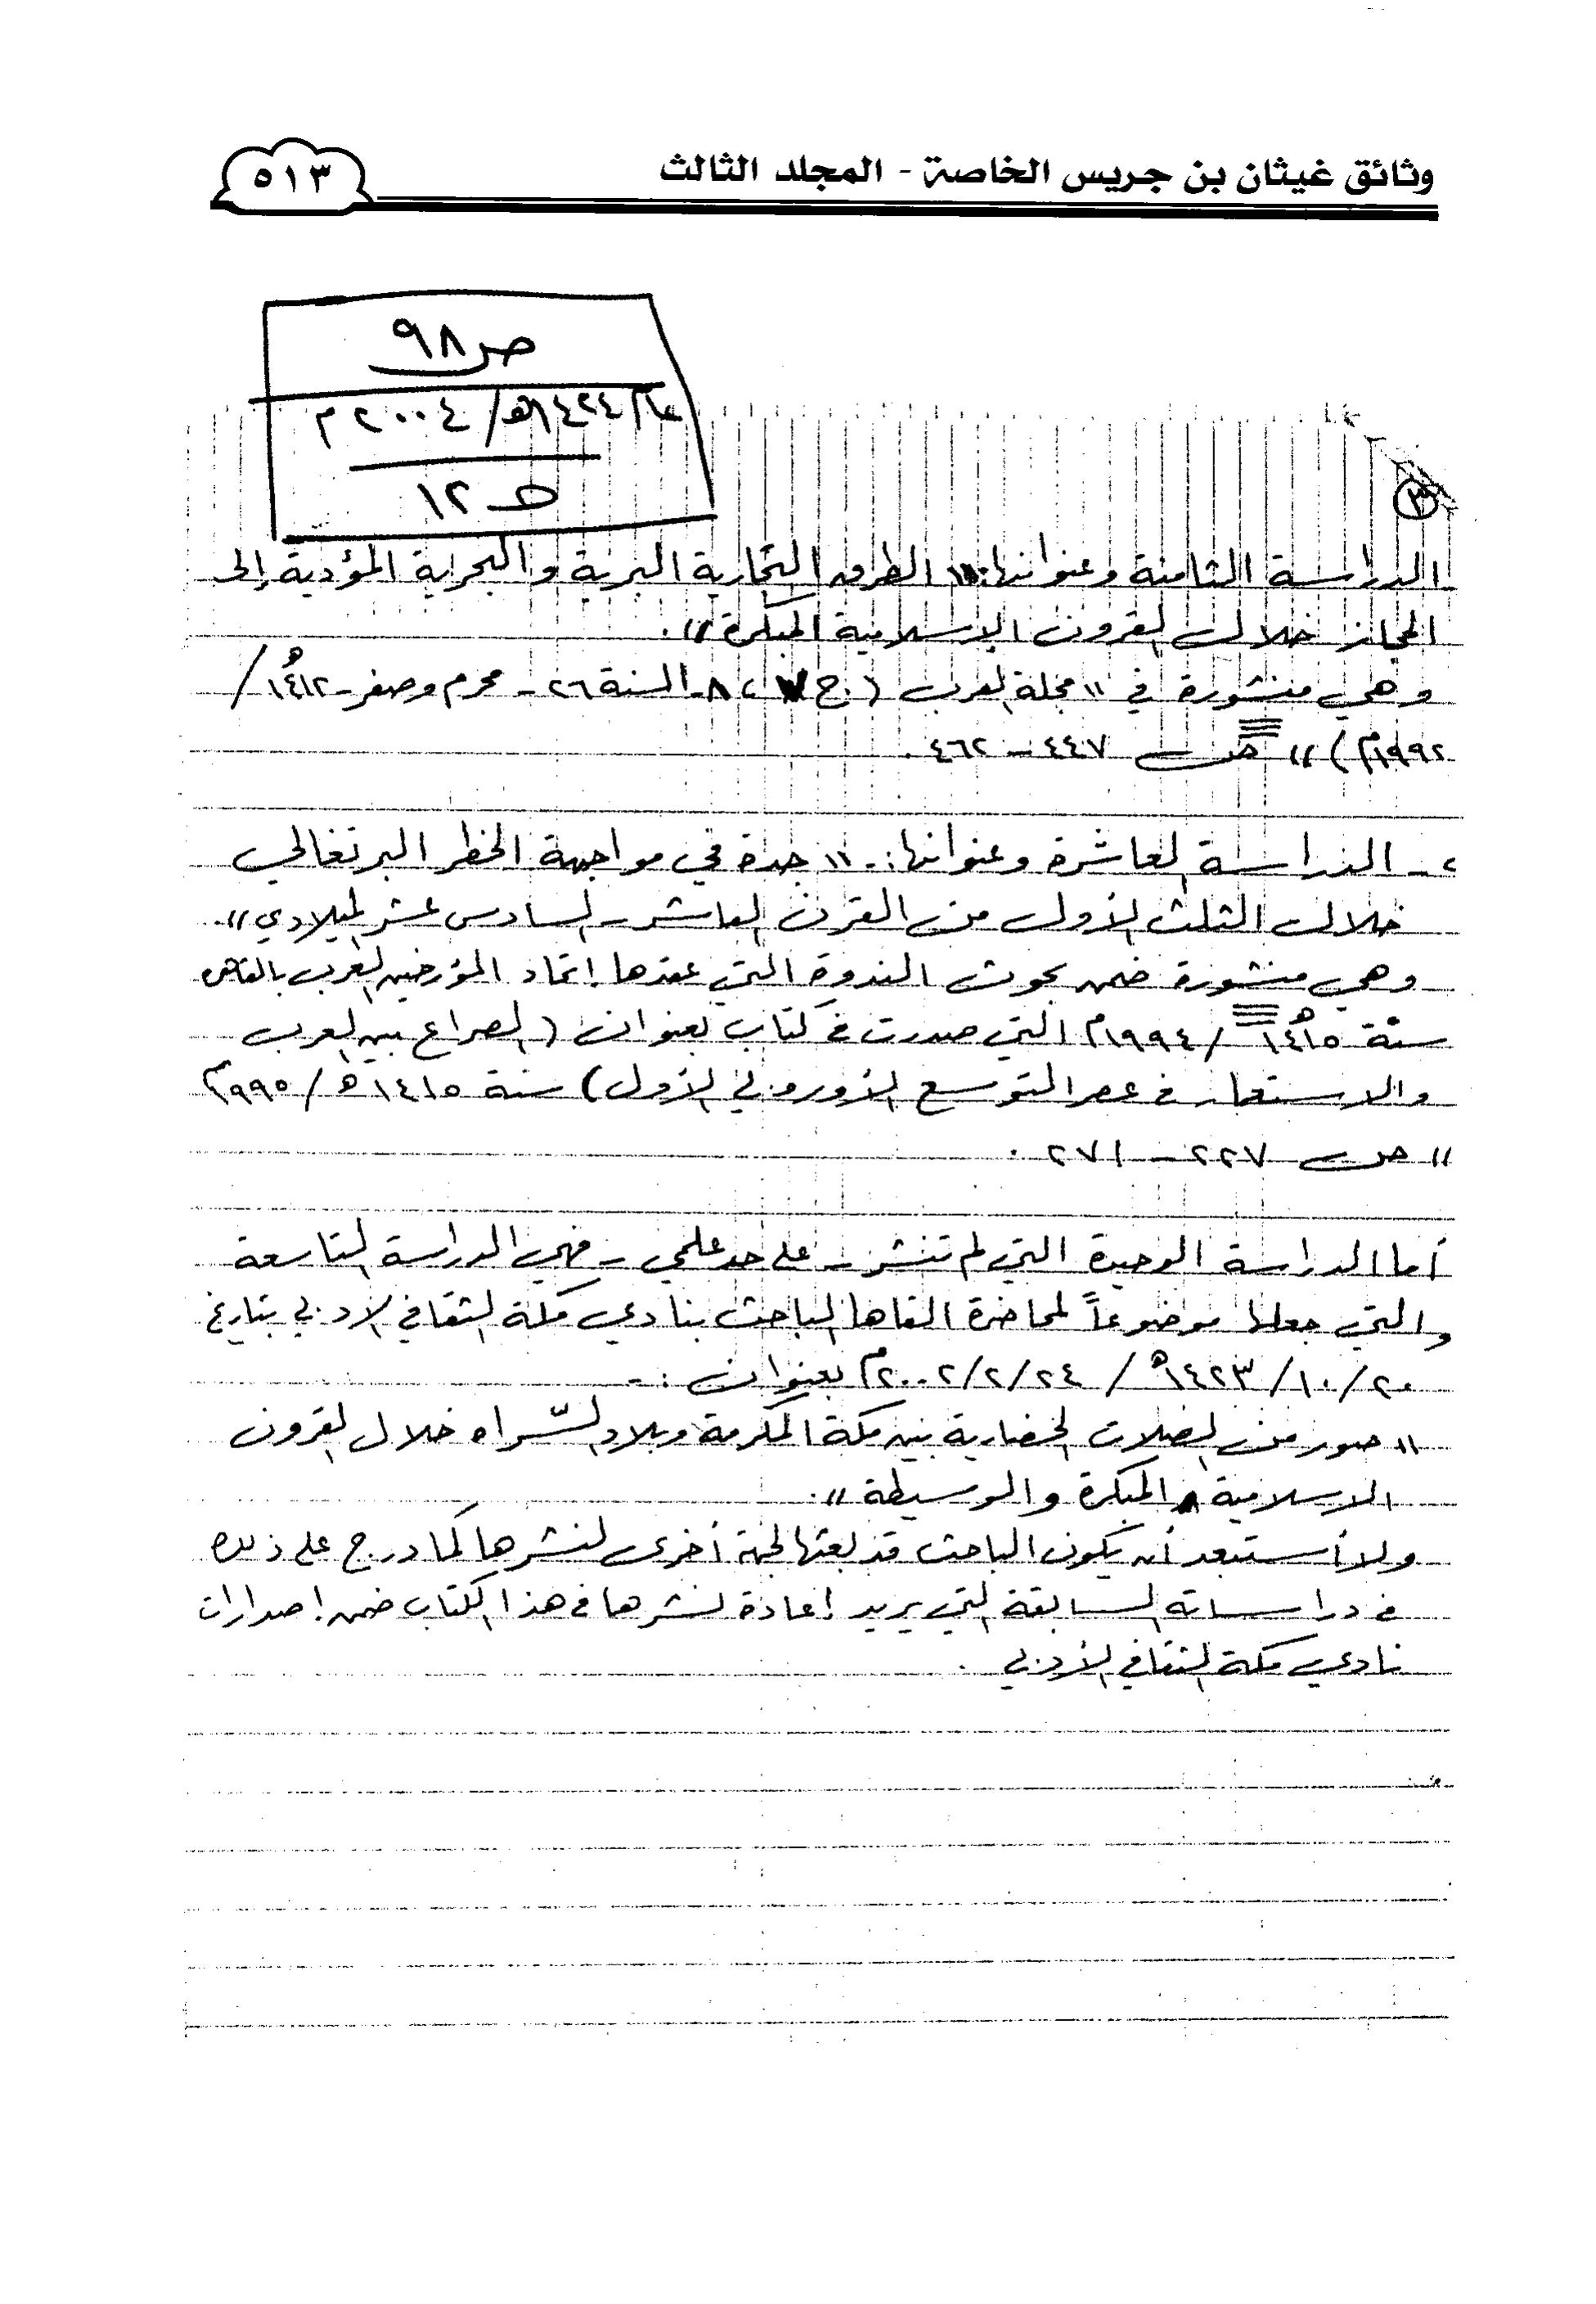 وثائق غيثان بن جريس الخاصة - المجلد الثالث
٥١٣
ص ٩٨
عام ١٤٢٤هـ / ٢٠٠٤م
ط ١٢
٣
الدراسة الثامنة وعنوانها: " الطرق التجارية البرية والبحرية المؤدية إلى
الحجاز خلال القرون الإسلامية المبكرة ".
وهي منشورة في " مجلة العرب ( ج ٧ ، ٨ - السنة ٢٦ - محرم وصفر - ١٤١٢هـ /
١٩٩٢م ) " ص ٤٤٧ - ٤٦٢ .
٢ - الدراسة العاشرة وعنوانها: - " جدة في مواجهة الخطر البرتغالي
خلال الثلث الأول من القرن العاشر - السادس عشر الميلادي ".
وهي منشورة ضمن بحوث الندوة التي عقدها إتحاد المؤرخين العرب بالقاهرة
سنة ١٤١٥هـ / ١٩٩٤م التي صدرت في كتاب بعنوان ( الصراع بين العرب
والاستعمار في عصر التوسع الأوروبي الأول ) سنة ١٤١٥هـ / ١٩٩٥م
" ص ٢٢٧ - ٢٧١ .
أما الدراسة الوحيدة التي لم تنشر - على حد علمي - فهي الدراسة التاسعة
والتي جعلها موضوعاً لمحاضرة القاها الباحث بنادي مكة الثقافي الادبي بتاريخ
٢٠/١٠/١٤٢٣هـ / ٢٤/٢/٢٠٠٢م بعنوان : -
" صور من الصلات الحضارية بين مكة المكرمة وبلاد السّراه خلال القرون
الاسلامية المبكرة والوسيطة ".
ولا أستبعد أن يكون الباحث قد بعثها لجهة أخرى لنشرها كما درج على ذلك
في دراساته السابقة التي يريد إعادة نشرها في هذا الكتاب ضمن إصدارات
نادي مكة الثقافي الأدبي .